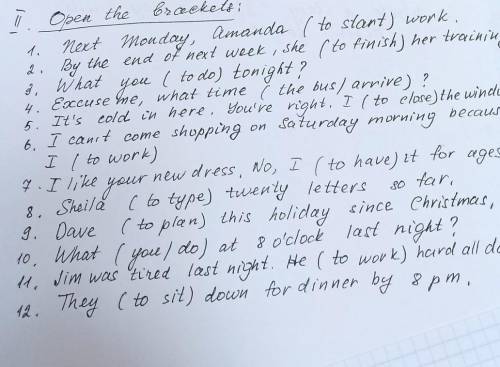 II. Open the brackets:
1. Next Monday, Amanda (to start) work.
2. By the end of next week, she (to finish) her training
3. What you (to do) tonight?
4. Excuse me, what time (the bus/arrive)?
5. It's cold in here. You're right. I (to close) the window
6. I can't come shopping on Saturday morning because
I (to work)
7. I like your new dress. No, I (to have) it for ages
8. Sheila (to type) twenty letters so far.
9. Dave (to plan) this holiday since Christmas,
10. What (you/do) at 8 o'clock last night?
11. Jim was tired last night. He (to work) hard all da
12. They (to sit) down for dinner by 8 pm.